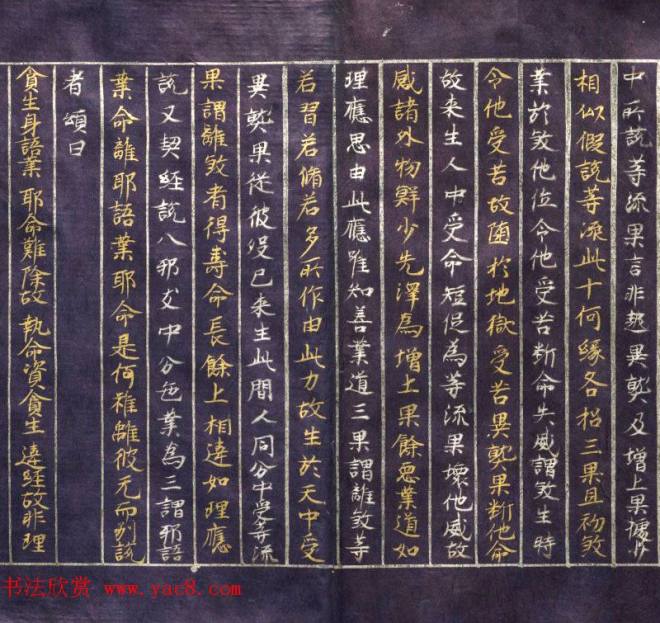 中所說等流果言非越異熟及增上果據少
相似假說等流此十何緣各招三果且初煞
業於煞他位令他受苦斷命失威謂煞生時
令他受苦故墮於地獄受苦異熟果斷他命
故来生人中受命短促為等流果壞他威故
感諸外物鮮少光澤為增上果餘惡業道如
理應思由此應唯知善業道三果謂離煞等
若習若脩若多所作由此力故生於天中受
異熟果從彼沒已来生此間人同分中受等流
果謂離煞者得壽命長餘上相違如理應
說又契經說八邪支中分色業為三謂邪語
業命離耶語業耶命是何雖離彼无而別說
者頌曰
貪生身語業 耶命難除故 執命資貪生 違經故非理
书法欣赏 www.yac8.com